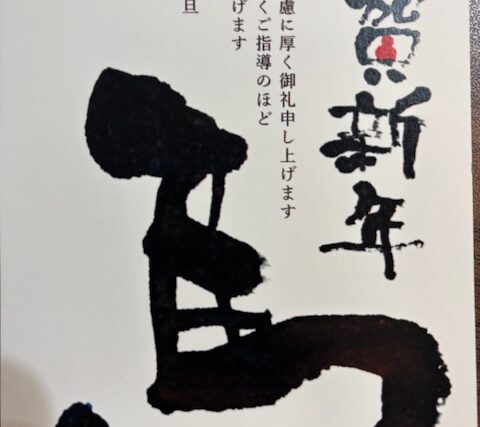 賀新年
慮に厚く御礼申し上げます
くご指導のほど
げます
旦
馬